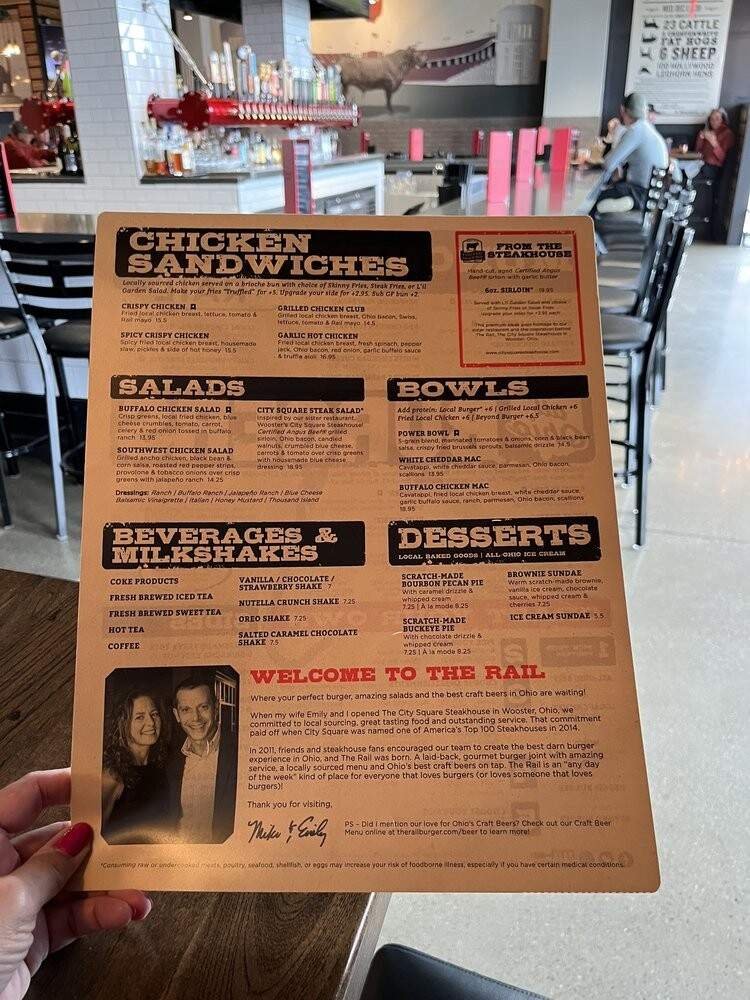 23 CATTLE
FAT HOGS
6 SHEEP
LEGHORN HENS
CHICKEN
SANDWICHES
Locally sourced chicken served on a brioche bun with choice of Skinny Fries, Steak Fries, or L'il
Garden Salad. Make your fries "Truffled" for +3. Upgrade your side for +2.95. Sub GF bun +2.
CRISPY CHICKEN
Fried local chicken breast, lettuce, tomato &
Rail mayo 15.5
SPICY CRISPY CHICKEN
Spicy fried local chicken breast, housemade
slaw, pickles & side of hot honey 15.5
GRILLED CHICKEN CLUB
Grilled local chicken breast, Ohio bacon, Swiss,
lettuce, tomato & Rail mayo 14.5
GARLIC HOT CHICKEN
Fried local chicken breast, fresh spinach, pepper
jack, Ohio bacon, red onion, garlic buffalo sauce
& truffle aioli 16.95
FROM THE
STEAKHOUSE
Hand-cut, aged Certified Angus
Beef® sirloin with garlic butter
6oz. SIRLOIN* 19.95
Served with L'il Garden Salad and choice
of Skinny Fries or Steak Fries
Upgrade your sides for +2.95 each
www.citysquaresteakhouse.com
SALADS
BUFFALO CHICKEN SALAD
Crisp greens, local fried chicken, blue
cheese crumbles, tomato, carrot,
celery & red onion tossed in buffalo
ranch 13.95
SOUTHWEST CHICKEN SALAD
Grilled ancho chicken, black bean &
corn salsa, roasted red pepper strips,
provolone & tobacco onions over crisp
greens with jalapeño ranch 14.25
CITY SQUARE STEAK SALAD*
Inspired by our sister restaurant,
Wooster's City Square Steakhouse!
Certified Angus Beef® grilled
sirloin, Ohio bacon, candied
walnuts, crumbled blue cheese,
carrots & tomato over crisp greens
with housemade blue cheese
dressing 18.95
Dressings: Ranch | Buffalo Ranch | Jalapeño Ranch | Blue Cheese
Balsamic Vinaigrette | Italian | Honey Mustard | Thousand Island
BOWLS
Add protein: Local Burger* +6 | Grilled Local Chicken +6
Fried Local Chicken +6 | Beyond Burger +6.5
POWER BOWL
5-grain blend, marinated tomatoes & onions, corn & black bean
salsa, crispy fried brussels sprouts, balsamic drizzle 14.5
WHITE CHEDDAR MAC
Cavatappi, white cheddar sauce, parmesan, Ohio bacon,
scallions 13.95
BUFFALO CHICKEN MAC
Cavatappi, fried local chicken breast, white cheddar sauce,
garlic buffalo sauce, ranch, parmesan, Ohio bacon, scallions
18.95
BEVERAGES &
MILKSHAKES
COKE PRODUCTS
FRESH BREWED ICED TEA
FRESH BREWED SWEET TEA
HOT TEA
COFFEE
VANILLA / CHOCOLATE /
STRAWBERRY SHAKE 7
NUTELLA CRUNCH SHAKE 7.25
OREO SHAKE 7.25
SALTED CARAMEL CHOCOLATE
SHAKE 7.5
DESSERTS
LOCAL BAKED GOODS | ALL-OHIO ICE CREAM
SCRATCH-MADE
BOURBON PECAN PIE
With caramel drizzle &
whipped cream
7.25 | À la mode 8.25
SCRATCH-MADE
BUCKEYE PIE
With chocolate drizzle &
whipped cream
7.25 | À la mode 8.25
BROWNIE SUNDAE
Warm scratch-made brownie,
vanilla ice cream, chocolate
sauce, whipped cream &
cherries 7.25
ICE CREAM SUNDAE 5.5
WELCOME TO THE RAIL
Where your perfect burger, amazing salads and the best craft beers in Ohio are waiting!
When my wife Emily and I opened The City Square Steakhouse in Wooster, Ohio, we
committed to local sourcing, great tasting food and outstanding service. That commitment
paid off when City Square was named one of America's Top 100 Steakhouses in 2014.
In 2011, friends and steakhouse fans encouraged our team to create the best darn burger
experience in Ohio, and The Rail was born. A laid-back, gourmet burger joint with amazing
service, a locally sourced menu and Ohio's best craft beers on tap. The Rail is an "any day
of the week" kind of place for everyone that loves burgers (or loves someone that loves
burgers)!
Thank you for visiting,
Mike & Emily
PS – Did I mention our love for Ohio's Craft Beers? Check out our Craft Beer
Menu online at therailburger.com/beer to learn more!
*Consuming raw or undercooked meats, poultry, seafood, shellfish, or eggs may increase your risk of foodborne illness, especially if you have certain medical conditions.